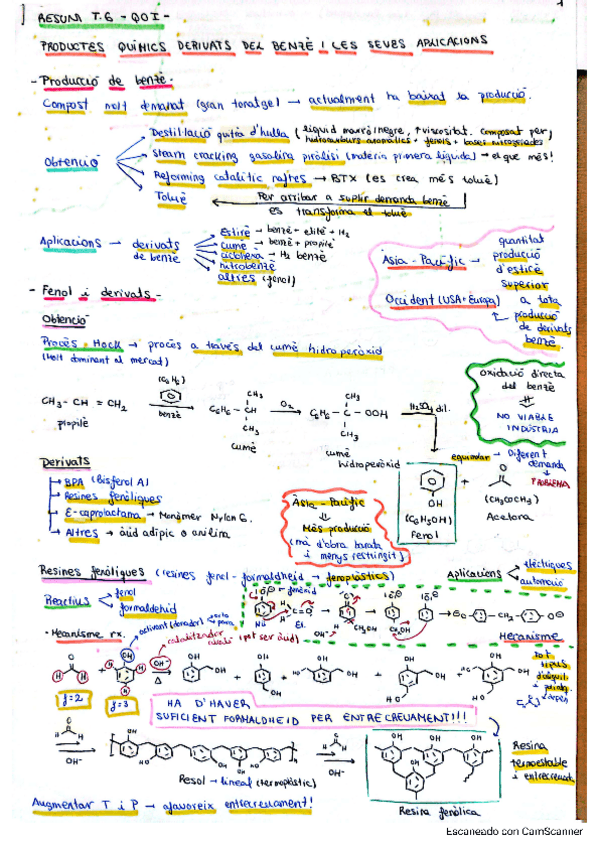 RESUM T.6 - QOI -
PRODUCTES QUÍMICS DERIVATS DEL BENZÈ I LES SEVES APLICACIONS
- Producció de benzè.
Compost molt demanat (gran tonatge) → actualment ha baixat la producció.
Obtenció
Destil·lació quitrà d'hulla (líquid marró/negre, ↑viscositat. Composat per
hidrocarburs aromàtics + fenols + bases nitrogenades
Steam cracking gasolina piròlisi (matèria primera líquida) → el que més!
Reforming catalític naftes → BTX (es crea més toluè)
Toluè
Per arribar a suplir demanda benzè
es transforma el toluè
Aplicacions → derivats de benzè
Estirè → benzè + etilè + H2
cumè → benzè + propilè
ciclohexà → H2 benzè
nitrobenzè
altres (fenol)
Àsia - Pacífic → quantitat
producció
d'estirè
superior
a tota
producció
de derivats
benzè.
Occident (USA + Europa)
- Fenol i derivats -
Obtenció
Procés Hock → procés a través del cumè hidroperòxid
(Molt dominant al mercat)
Oxidació directa
del benzè
NO VIABLE
INDÚSTRIA
(C6H6)
CH3 - CH = CH2
propilè
benzè
CH3
C6H5 - CH
CH3
cumè
O2
CH3
C6H5 - C - OOH
CH3
cumè
hidroperòxid
H2SO4 dil.
equimolar → Diferent
demanda
PROBLEMA
OH
(C6H5OH)
Fenol
+
O
(CH3COCH3)
Acetona
Derivats
BPA (Bisfenol A)
Resines fenòliques
ε-caprolactama → Monòmer Nylon 6.
Altres → àcid adípic o anilina
Àsia - Pacífic
Més producció
(mà d'obra barata
i menys restringit)
Resines fenòliques (resines fenol-formaldheid →
Aplicacions
elèctriques
automoció
Reactius
fenol
formaldehid
- Mecanisme rx.
activant (donador)
catalitzador
(pot ser àcid)
Nu
El.
OH-
CH2OH
Mecanisme
f=2
f=3
OH-
Δ
tot
tipus
HA D'HAVER
SUFICIENT FORMALDHEID PER ENTRECREUAMENT!!!
OH-
Resol → lineal (termoplàstic)
OH-
Resina fenòlica
Resina
termoestable
i entrecreuada
Augmentar T i P → afavoreix entrecreuament!
Escaneado con CamScanner